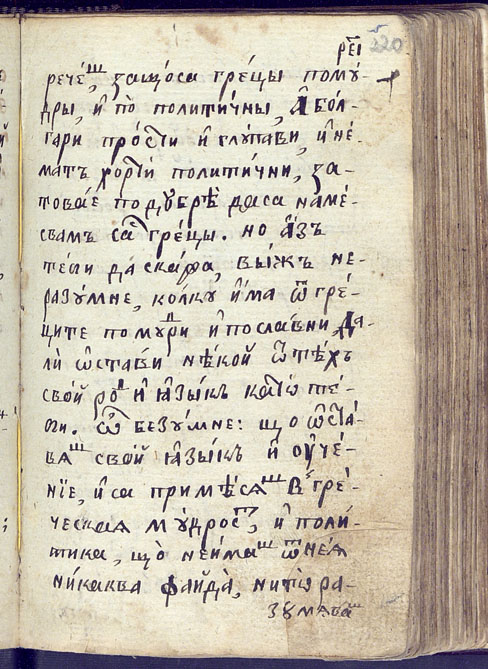 рⷭ҇еі 220
рече́ⷲ, защо́са гре́цы пому́-
дры, и҆ по̀ полити́чны, а҆ бо́л-
гари про́сти и҆ глу́пави, и҆ не́-
матъ хорти́ полити́чни, за-
това́е подꙋбрѣ̀ даса наме́-
свамъ саⷭ҇ гре́цы. но а҆́зъ
те́ѡи даскажа, ви́жъ не-
разу́мне, ко́лку и҆́ма ѿ гре́-
ците помуⷣри и҆ посла́вни, Да-
лѝ ѡ҆ста́ви нѣ́кой ѿ тѣ́хъ
сво́й роⷣ и҆ ꙗ҆зы́къ катѡ̀ те́-
би. ѽ безу́мне: що ѡ҆ста́-
вѧⷲ сво́й ꙗ҆зы́къ и҆ оу҆че́-
нїе, и҆ са примѣ́сѧⷲ в гре́-
ческаѧ му́дросⷮ, и҆ поли́-
тика, що̀ не и҆́маⷲ ѿ не́ѧ
ни́каква файда̀, нитѡ ра-
зꙋмѣваⷲ